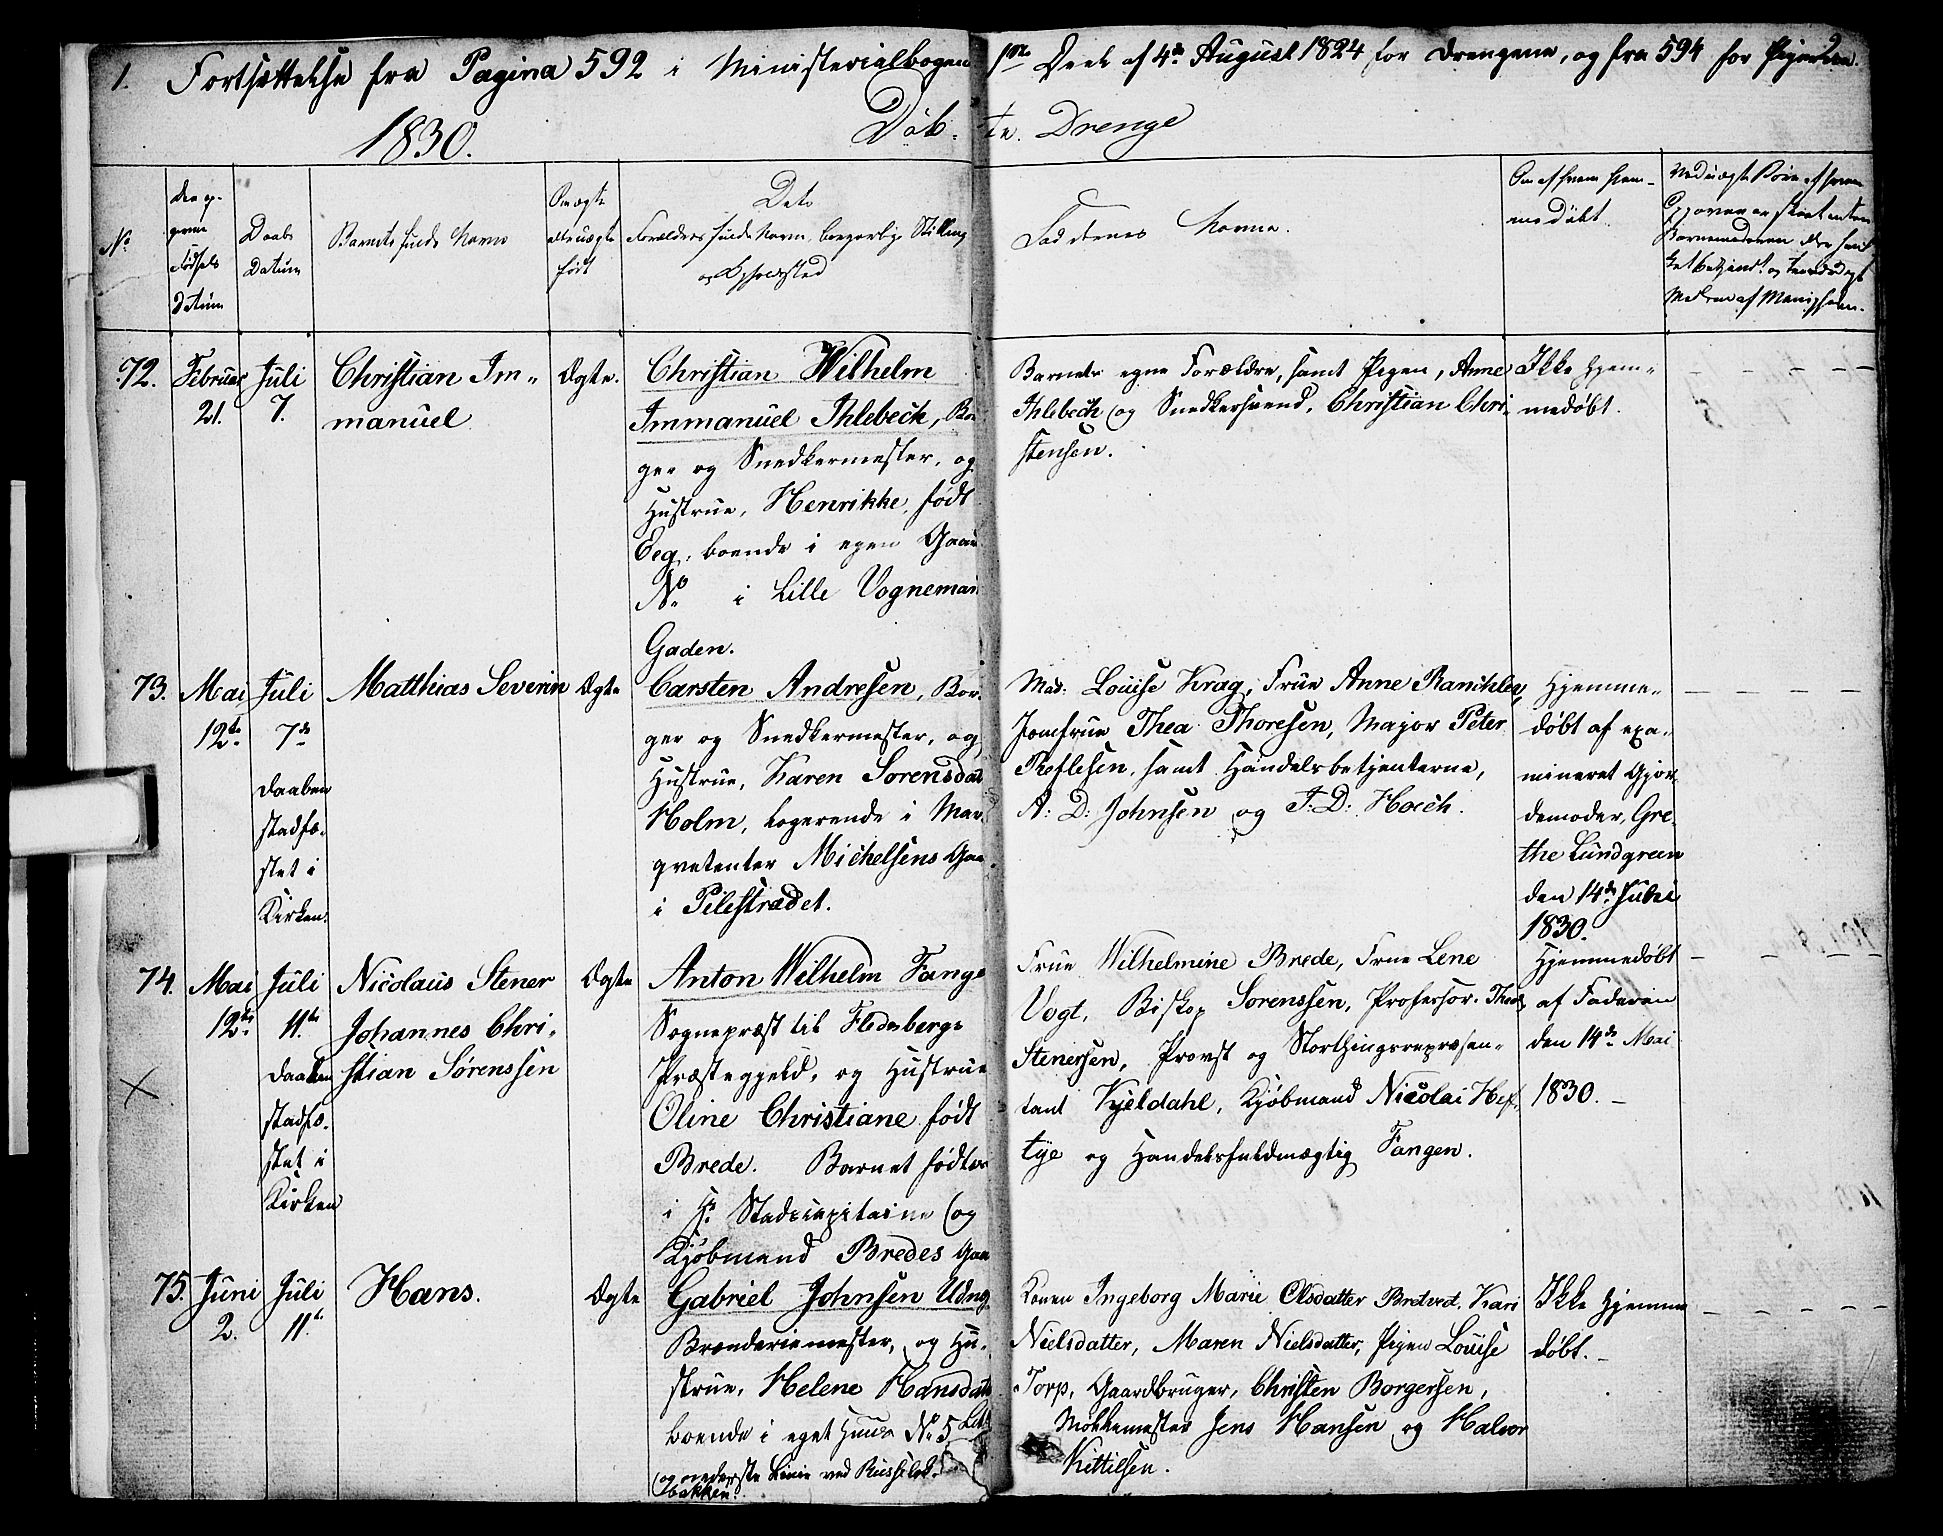 1. Fortsættelse fra Pagina 592 i Ministerialbogens 1ste Deel af 4de August 1824 for Drengene, og fra 594 for Pigerne. 2.
1830. Døb- te Drenge
No
den op-
givne
Fødsels
Datum
Daabs
Datum
Barnets fulde Navn
Om ægte
eller uægte
født
Dets
Forældres fulde Navn, borgerlige Stilling
og Opholdssted
Faddernes Navne.
Om af hvem hjem-
medøbt
72.
Februar
21.
Juli
7.
Christian Im-
manuel
Ægte.
Christian Wilhelm
Immanuel Ihlebech, Bor
ger og Snedkermester, og
Hustrue, Henrikke, født
Eeg, boende i egen Gaard
No i Lille Vognmand
Gaden.
Barnets egne Forældre, samt Pigen, Anne
Ihlebech og Snedkersvend, Christian Chri-
stensen.
Ikke hjem-
medøbt.
73.
Mai
12te
Juli
7de
Daaben
stadfæ-
stet i
Kirken.
Matthias Severin
Ægte
Carsten Andresen, Bor-
ger og Snedkermester, og
Hustrue, Karen Sorensdat
Holm, logerende i Mar-
qvetenter Michelsens Gaa
i Pilestrædet.
Mad: Louise Krag, Frue Anne
Jomfrue Thea Thoresen, Major Peter
samt Handelsbetjenterne,
A: D: Johnsen og T: D: Hoech.
Hjemme-
døbt af exa-
mineret Gjor-
demoder, Gre-
the Lundgreen
den 14de
1830.
74.
Mai
12te
Juli
11te
Daaben
stadfæ-
stet i
Kirken
Nicolaus Stener
Johannes Chri-
stian Sørenssen
Ægte
Anton Wilhelm Fange
Sognepræst til Flesbergs
Præstegjeld, og Hustrue
Oline Christiane født
Brede. Barnet født
i Hr. Stadscapitaine (og
Kjøbmand Bredes Gaa
Frue Wilhelmine Brede, Frue Lene
Vogt, Biskop Sorenssen, Professor
Stenersen, Provst og Storthingsrepræsen-
tant Kjeldahl, Kjøbmand Nicolai Hef-
tye og Handelsfuldmægtig Fangen.
Hjemmedøbt
af Faderen
den 14de Mai
1830. –
75.
Juni
2.
Juli
11te
Hans.
Ægte
Gabriel Johnsen Udng
Brænderiemester, og Hu-
strue, Helene Hansdat
boende i eget Huus No 5
og nederste Linie ved Russeløk-
bakken.
Konen Ingeborg Marie Olsdatter Bretvet, Kari
Nielsdatter, Maren Nielsdatter, Pigen Louise
Torp, Gaardbruger, Christen Borgersen,
Møllemester Jens Hansen og Halvor
Kittilsen.
Ikke hjemme
døbt. –